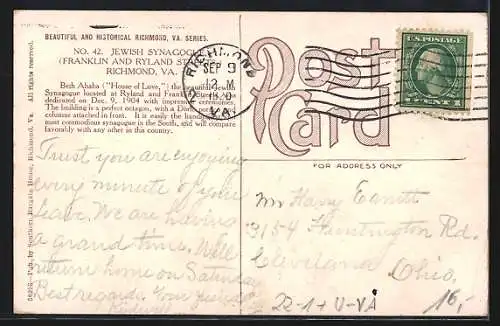 BEAUTIFUL AND HISTORICAL RICHMOND, VA. SERIES.
NO. 42. JEWISH SYNAGOGUE
(FRANKLIN AND RYLAND ST
RICHMOND, VA.
Beth Ahaba ("House of Love,") the beautiful Jewish
Synagogue located at Ryland and Franklin Streets
dedicated on Dec. 9, 1904 with impressive ceremonies.
The building is a perfect octagon, with a Doric
columns attached in front. It is easily the handsomest
most commodious synagogue in the South, and will compare
favorably with any other in this country.
All rights reserved.
Pub. by Southern Bargain House, Richmond, Va.
RICHMOND
SEP 9
VA.
Post
Card
FOR ADDRESS ONLY
U.S. POSTAGE
1 CENT 1
Trust you are enjoying
every minute of your
leave. We are having
a grand time. Will
return home on Saturday
Best regards. Your friend
Mr Harry
3154 Huntington Rd.
Cleveland
Ohio,
22-1+U-VA
16,-